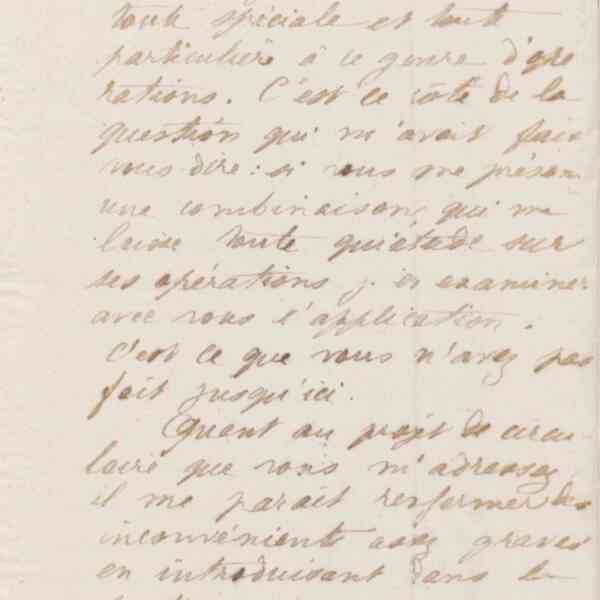 toute spéciale et toute
particulière à ce genre d'opé
rations. C'est ce côté de la
question qui m'avait fait
vous dire : si vous me présen
une combinaison qui me
laisse toute quiétude sur
ses opérations, j'en examiner
avec vous l'application.
C'est ce que vous n'avez pas
fait jusqu'ici.
Quant au projet de circu-
laire que vous m'adressez
il me parait renfermer des
inconvénients assez graves
en introduisant dans le